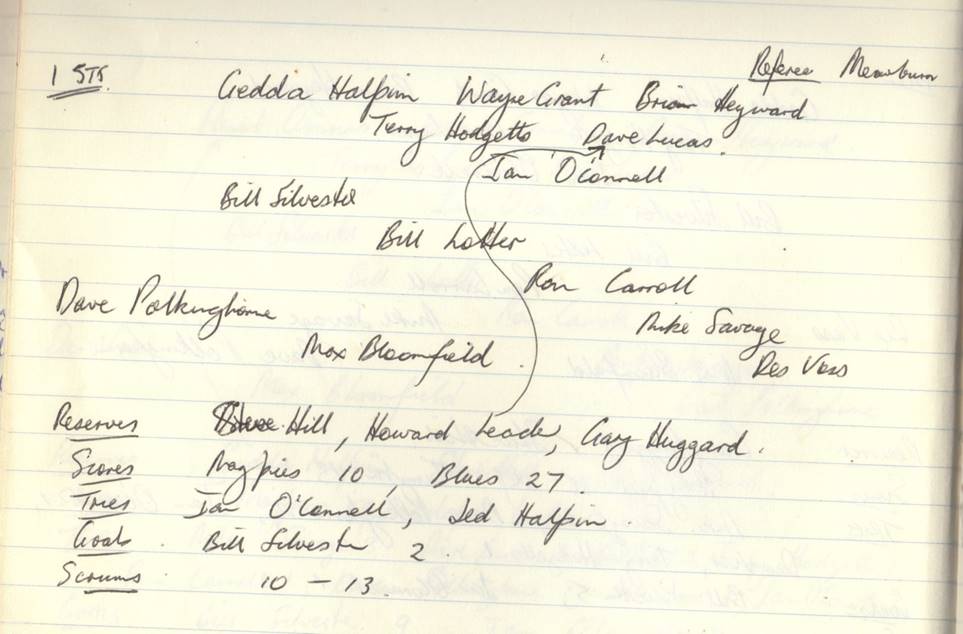 1 STS
Referee Mewburn
Gedda Halpin Wayne Grant Brian Heyward
Terry Hodgetts Dave Lucas.
Ian O'Connell
Bill Silvester
Bill Lotter
Ron Carroll
Dave Polkinghorne
Mike Savage
Max Bloomfield.
Des Vass
Reserves Hill, Howard Leader, Gary Huggard.
Scores Magpies 10, Blues 27.
Tries Ian O'Connell, Jed Halpin.
Goals. Bill Silvester 2.
Scrums. 10 - 13.